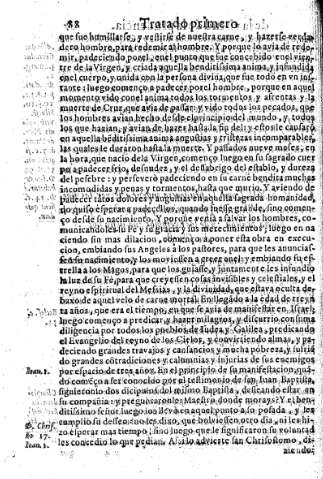 88 Tratado primero
que fue humillarse, y vestirse de nuestra carne, y hazerse verda-
dero hombre, para redemir al hombre. Y porque lo auia de redi-
mir, padeciendo por el, en el punto que fue concebido en el vien-
tre de la Virgen, y criada aquella benditissima anima, y infundida
en el cuerpo, y unida con la persona diuina, que fue todo en un ins-
tante: luego començo a padecer por el hombre, porque en aquel
momento vido con el anima todos los tormentos y afrentas y la
muerte de Cruz que auia de passar, y vido todos los pecados, que
los hombres auian hecho desde el principio del mundo, y todos
los que hazian, y auian de hazer hasta la fin del y esto le causaro
en aquella benditissima anima angustias y tristezas incomparables,
las quales le duraron hasta la muerte. Y passados nueue meses, en
la hora, que nacio de la Virgen, començo luego en su sagrado cuer
po a padecer frio, desnudez, y el desabrigo del establo, y dureza
del pesebre y perseueró padeciendo en su carne bendita muchas
incomodidades y penas y tormentos, hasta que murio. Y auiendo de
padecer tãtos dolores y angustias en aquella sagrada humanidad,
no quiso esperar a padecellos, quando fuesse grãde, sino comen-
ço desde su nacimiento. Y porque venia a saluar los hombres, co-
municandoles su Fe y su gracia y sus merecimientos, luego en na
ciendo sin mas dilacion, començo a poner esta obra en execu-
cion, embiando sus Angeles a los pastores, para que les anuncias-
sen su nacimiento, y los mouiessen a creer en el, y embiando su es-
trella a los Magos, para que los guiasse, y juntamente les infundio
la luz de su Fe, para que creyessen cosas inuisibles y celestiales, y el
reyno espiritual del Messias, y la diuinidad, que estaua oculta de-
baxo de aquel velo de carne mortal. En llegãdo a la edad de treyn
ta años, que era el tiempo, en que se auia de manifestar a Israel,
luego començo a predicar y hazer milagros, y discurrio con suma
diligencia por todos los pueblos de Iudea y Galilea, predicando
el Euangelio del reyno de los Cielos, y conuirtiendo almas, y pa-
deciendo grandes trauajos y cansancios y mucha pobreza, y sufriẽ
do grandes cõtradiciones y calumnias y injurias de sus enemigos
Ioan. 1. por espacio de tres años. En el principio de su manifestacion, quã-
do comẽço a ser conocido por el testimonio de san Iuan Baptista,
siguieronlo dos dicipulos del mismo Baptista, deseando estar en
su compañia: y preguntaronle: Maestro donde moras? Y el ben-
ditissimo señor luego los lleuò en aquel punto a su posada, y les
D. Chris. cumplio su desseo: no les dixo, que boluiessen otro dia, ni les hi-
ho 17. zo esperar mas tiempo, sino luego que le significaron su voluntad
Ioan. 1. les concedio lo que pedian. Assi lo aduierte san Chrisostomo, di-
ziendo: